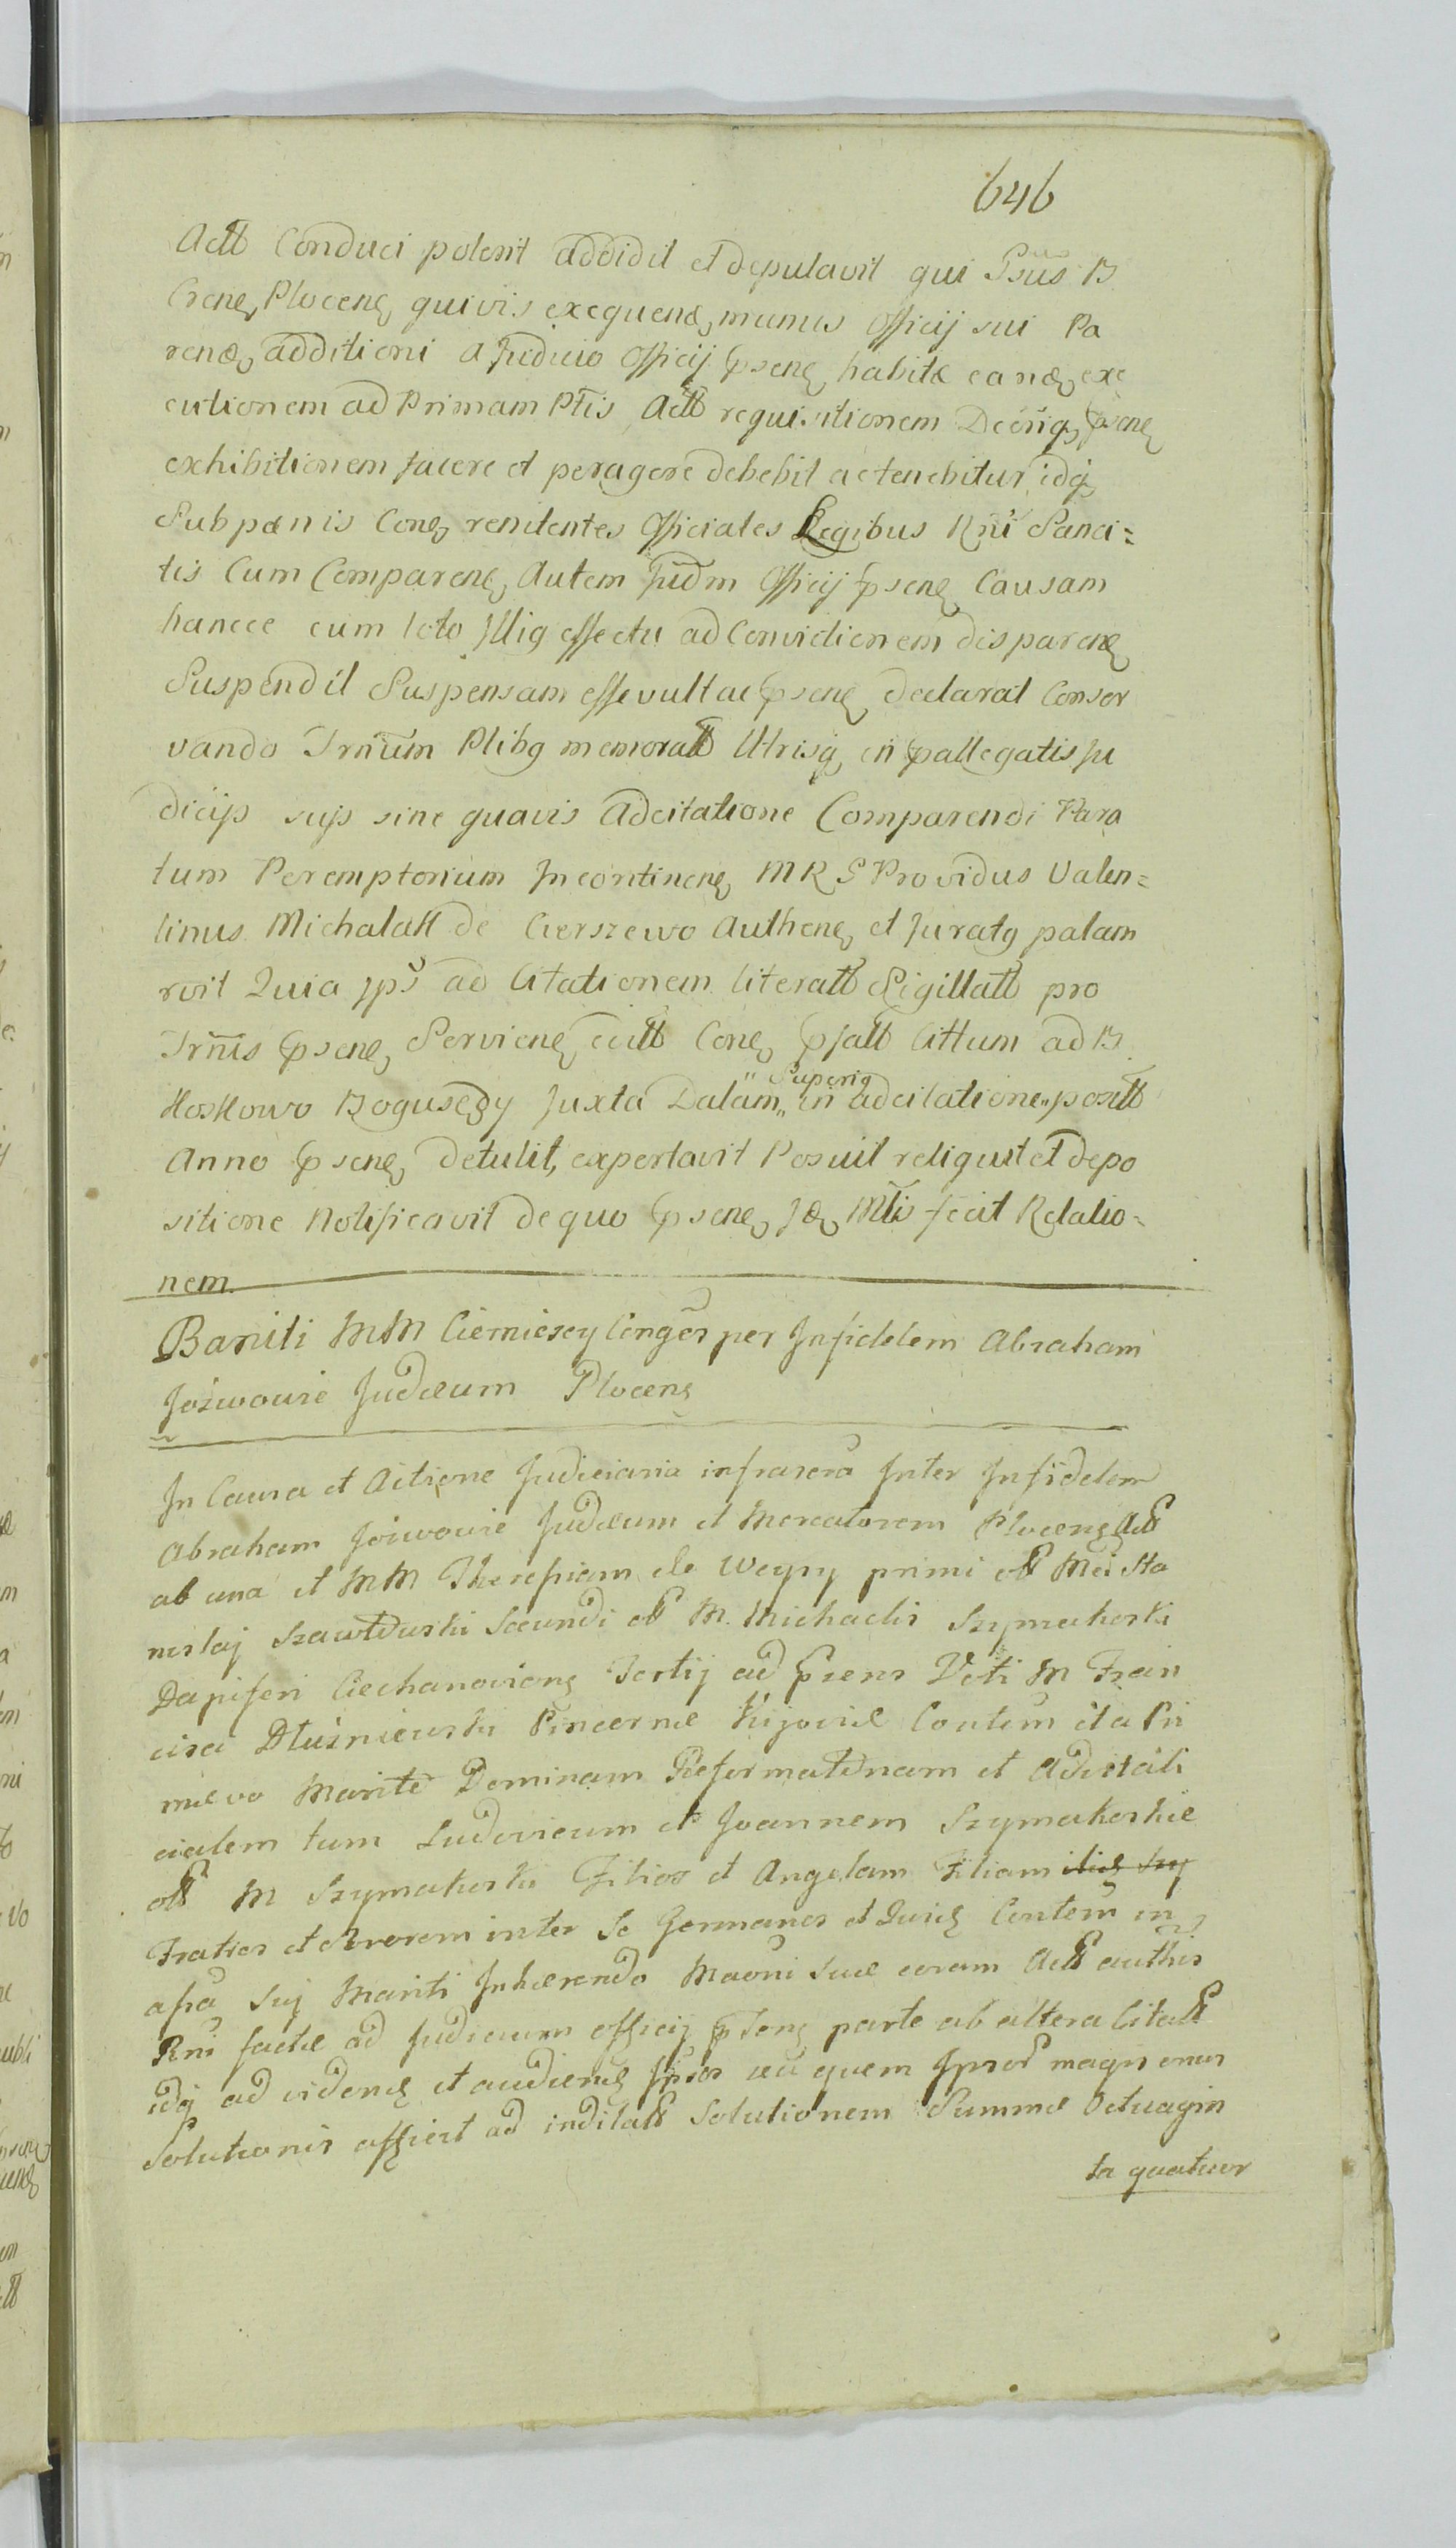 646
Actt Conduci poterit addidit et deputavit qui Psus B
Crene Plocene quivis exequene munus Officij sui Pa
rene additioni a Judicio Officij psene habitæ eane exe
cutionem ad Primam Ptis Actt requisitionem psene
exhibitionem facere et peragere debebit ac tenebitur idq
Sub pænis Cone renitentes Officiales Legibus Rni Sanci=
tis Cum Comparene Autem Judm Officij psene Causam
hancce cum toto Illig effectu ad Convictionem disparene
Suspendit Suspensam esse vult ac psene declarat Conser
vando Trnum Ptibg memoratt Utrisq in pallegatis Ju
dicijs sujs sine quavis Adcitatione Comparendi Para
tum Peremptorium Incontinene MRS Providus Valen=
tinus Michalak de Cierszewo Authene et Juratg palam
rvit Quia ips ad Citationem literatt Sigillatt pro
Trnis psene Serviene Cone Cittum ad B
Koskowo Bogusędy Juxta Datam,, Superig in adcitatione,, positt
Anno psene detulit, exportavit Posuit reliquit et depo
sitione Notificavit de quo psene Mtis fecit Relatio=
nem.
Baniti MM Ciemiescy Conges per Infidelem Abraham
Joswowie Judæum Plocene
In Causa et Actione Judiciaria infrascra Inter Infidelem
Abraham Joswowie Judæum et Mercatorem Plocene Actt
ab una et MM Theresiam de Węgry primi ott Mci Sta
nislaj Szawłowski Secundi ott M. Michaelis Szymakoski
Dapiferi Ciechanoviene Tertij ad psens Voti M Fran
cisci Dłużniewski Pincernæ Kijoviæ Contem et a Pri
mævo Marito Dominam Reformatoriam et Advitali
cialem tum Ludovicum et Joannem Szymakoskie
ott M Szymakoski Filios et Angelam Filiam
Fratres et Sororem inter Se Germanos et Contem in
asa Suj Mariti Inhærendo Maoni Suæ coram Actt authis
Rni factæ ad Judicium officij psene parte ab altera Citatt
idq ad videne et audiene Ipsos seu quem Ipsor magis onus
Solutionis afficit ad indilatt Solutionem Summæ Octuagin
ta quatuor